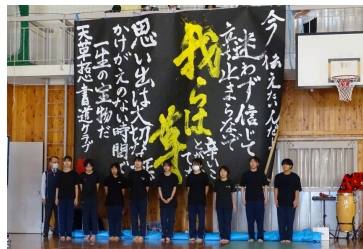 今伝えたいんだ
迷わず信じて
立ち止まらないで
我らは
草
思い出は大切な
かけがえのない時間
一生の宝物だ
天草拓心書道クラブ